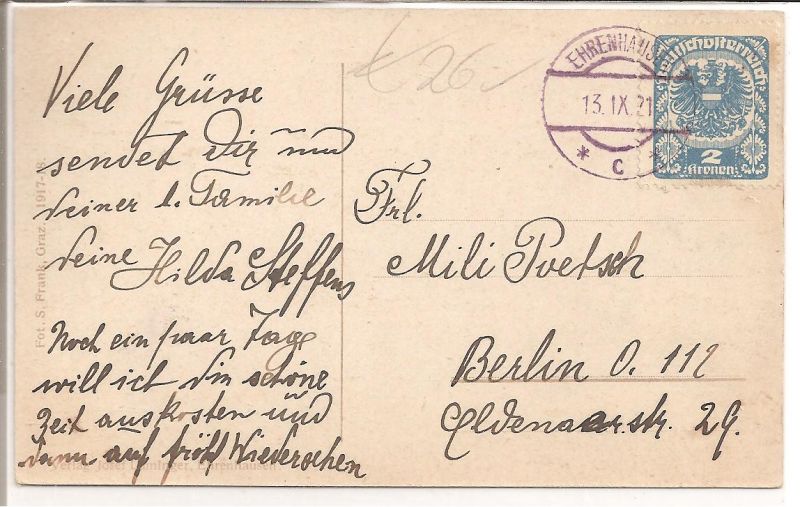 Viele Grüsse
sendet Dir und
deiner l. Familie
deine Hilda Steffens
Noch ein paar Tage
will ich die schöne
Zeit auskosten und
dann auf fröhl Wiedersehen
£ 26.-
EHRENHAUSEN
13. IX. 21
* C *
Deutschösterreich
2
Kronen
Frl.
Mili Poetsch
Berlin O. 112
Eldenaer.str. 29.
Fot. S. Frank, Graz. 1917-18
Verlag Josef Ehrenhausen